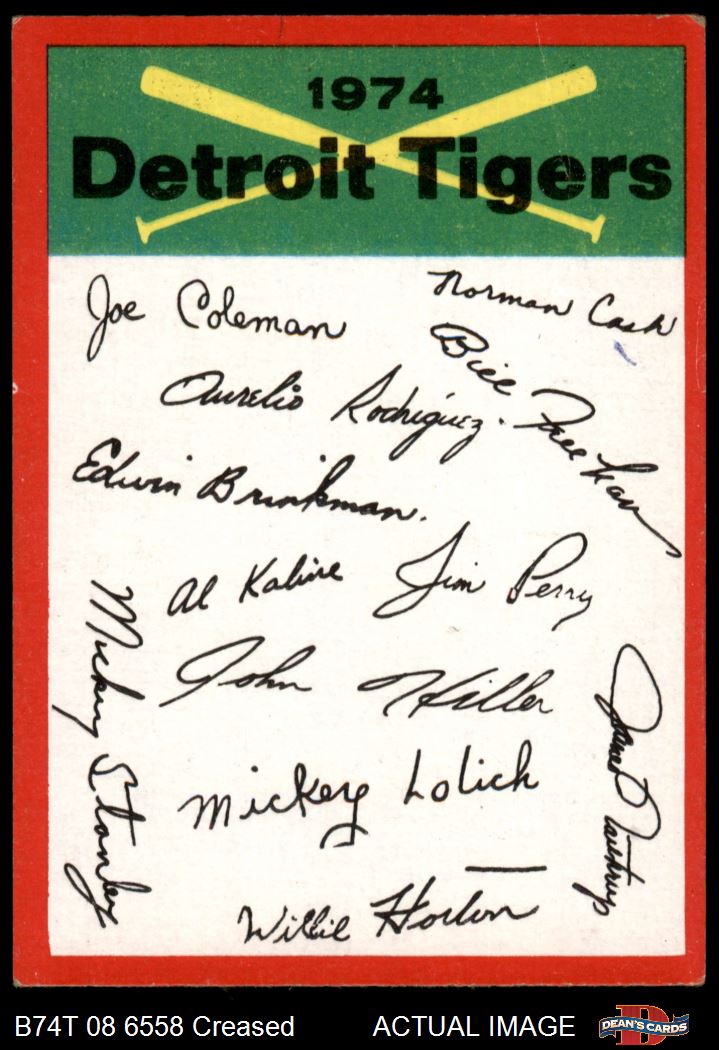 1974
Detroit Tigers
Joe Coleman
Norman Cash
Bill Freehan
Aurelio Rodriguez.
Edwin Brinkman.
Al Kaline
Jim Perry
Mickey Stanley
John Hiller
James Northrup
Mickey Lolich
Willie Horton
B74T 08 6558 Creased
ACTUAL IMAGE
D
DEAN'S CARDS